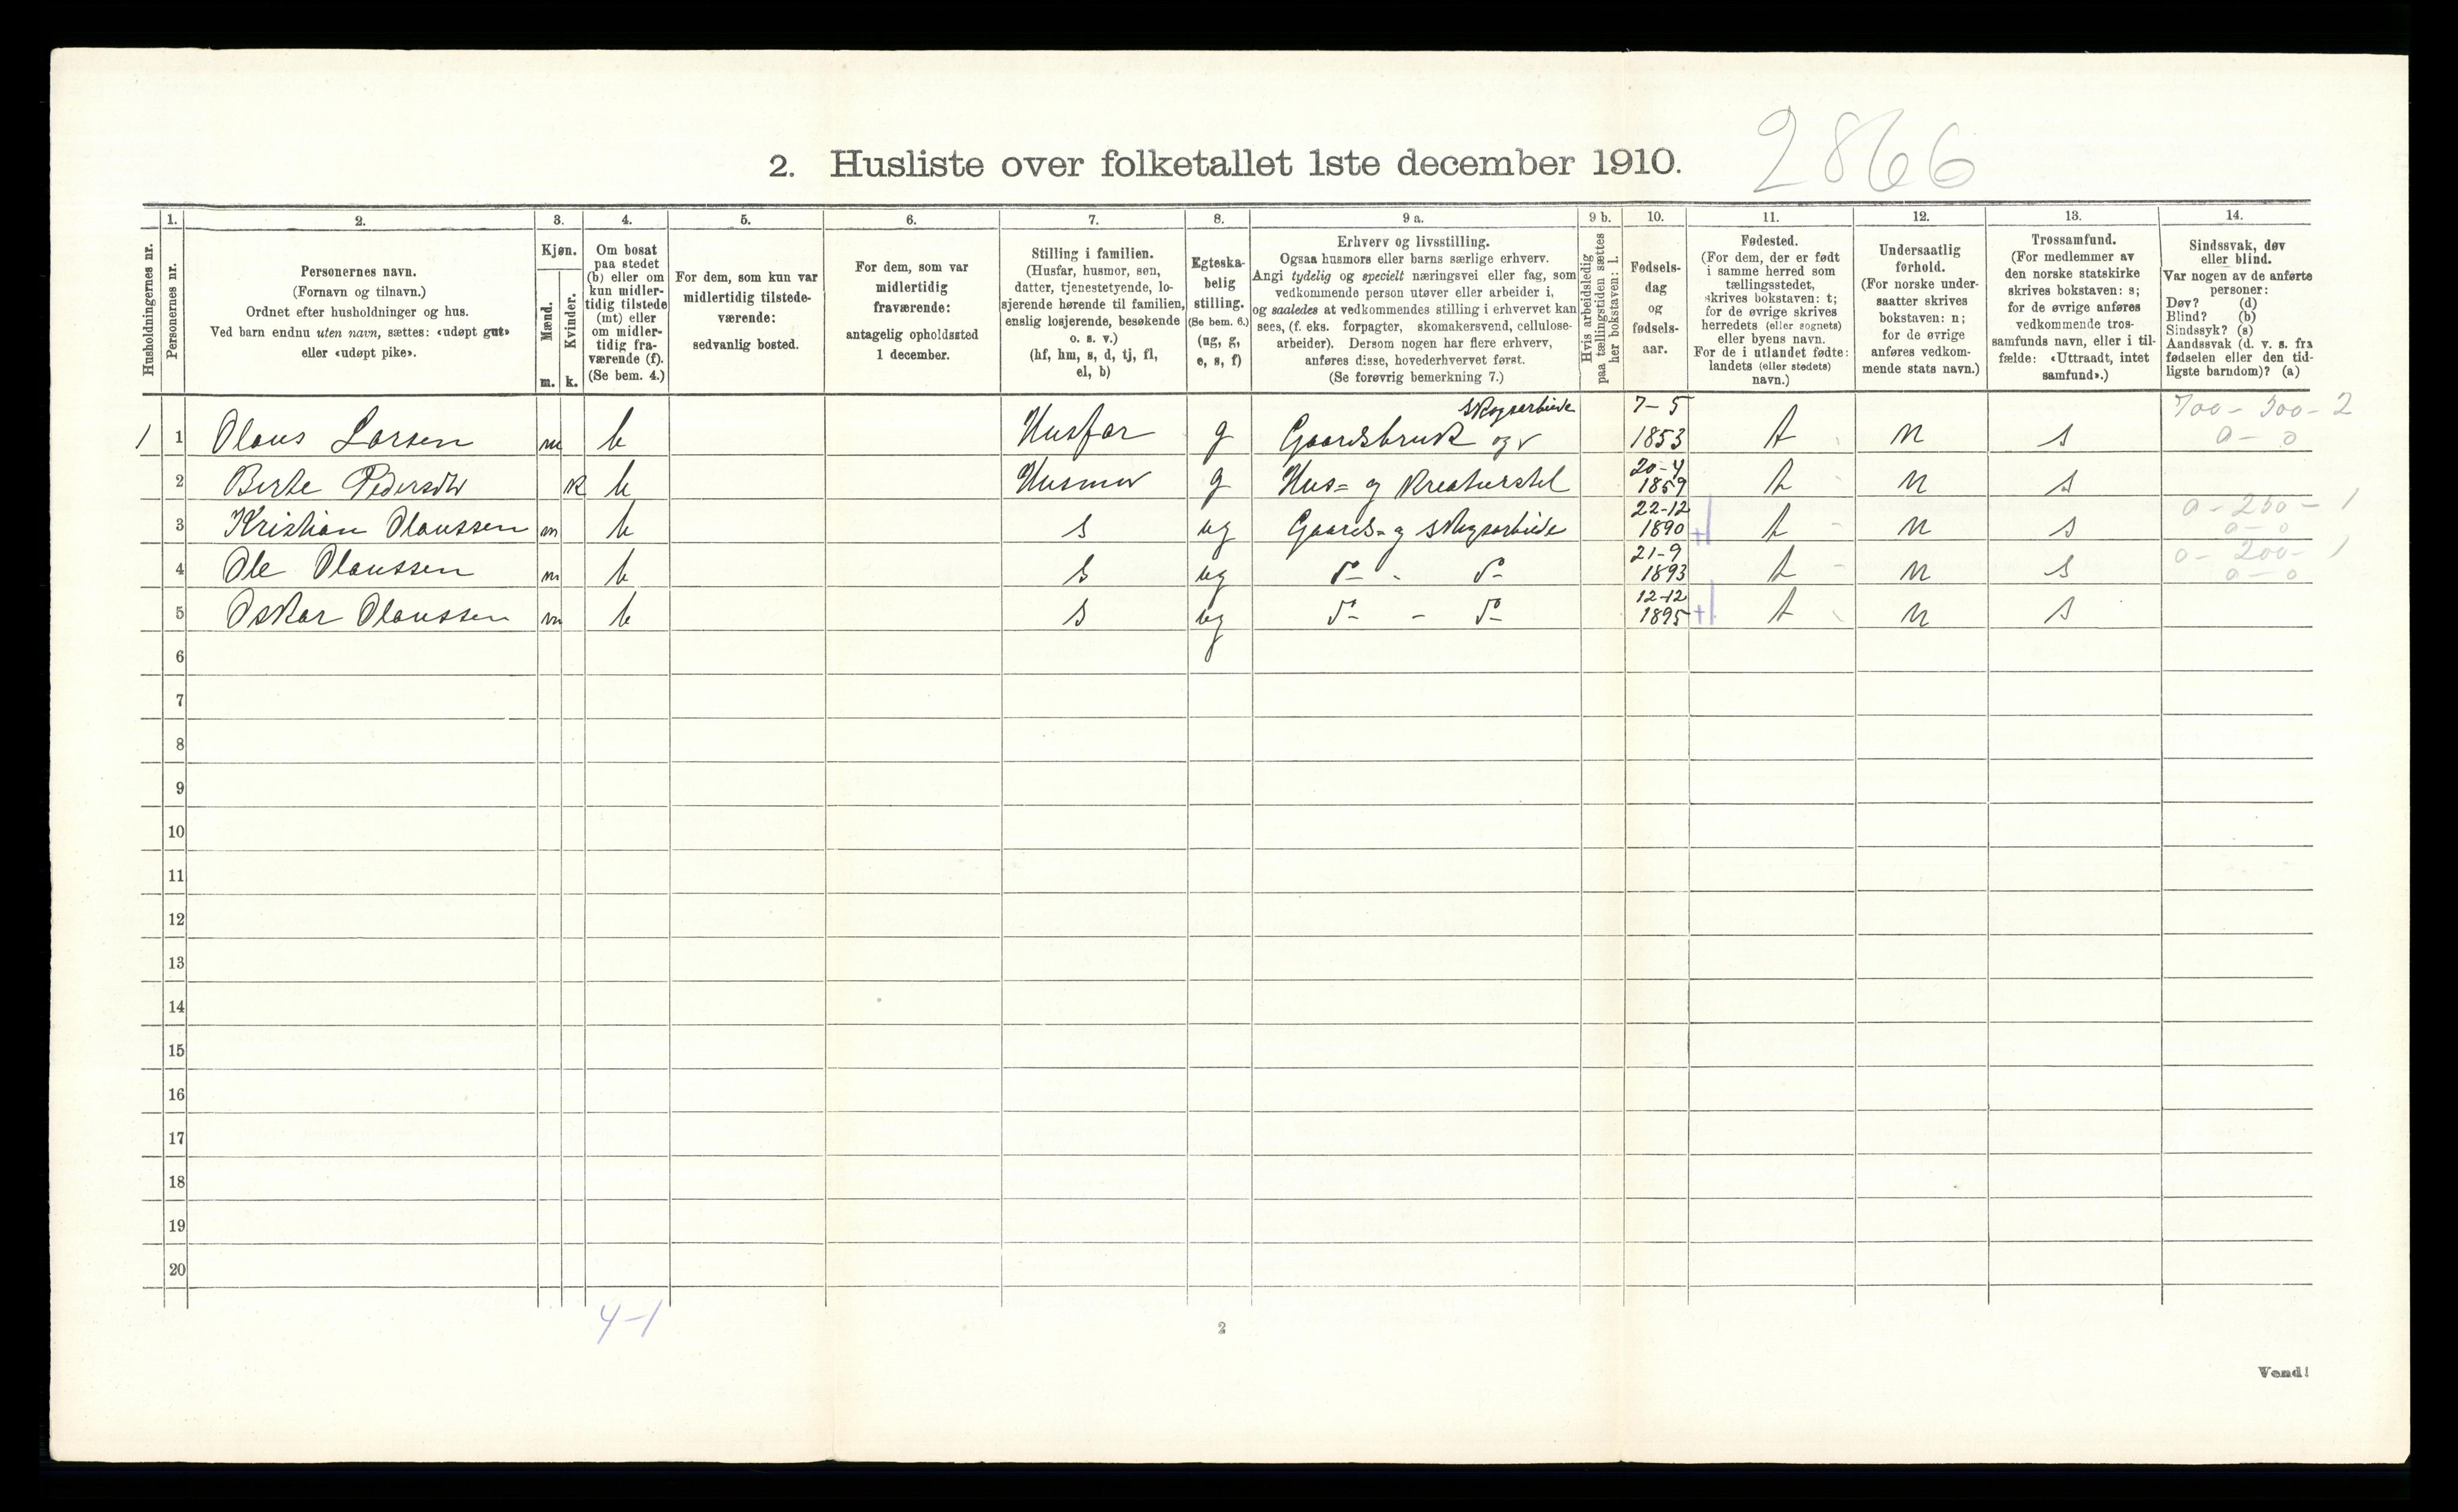 2866
2. Husliste over folketallet 1ste december 1910.
Husholdningernes nr.
1.
Personernes nr.
2.
Personernes navn.
(Fornavn og tilnavn.)
Ordnet efter husholdninger og hus.
Ved barn endnu uten navn, sættes: «udøpt gut»
eller «udøpt pike».
3.
Kjøn.
Mænd.
Kvinder.
m. k.
4.
Om bosat
paa stedet
(b) eller om
kun midler-
tidig tilstede
(mt) eller
om midler-
tidig fra-
værende (f).
(Se bem. 4.)
5.
For dem, som kun var
midlertidig tilstede-
værende:
sedvanlig bosted.
6.
For dem, som var
midlertidig
fraværende:
antagelig opholdssted
1 december.
7.
Stilling i familien.
(Husfar, husmor, søn,
datter, tjenestetyende, lo-
sjerende hørende til familien,
enslig losjerende, besøkende
o. s. v.)
(hf, hm, s, d, tj, fl,
el, b)
8.
Egteska-
belig
stilling.
(Se bem. 6.)
(ug, g,
e, s, f)
9 a.
Erhverv og livsstilling.
Ogsaa husmors eller barns særlige erhverv.
Angi tydelig og specielt næringsvei eller fag, som
vedkommende person utøver eller arbeider i,
og saaledes at vedkommendes stilling i erhvervet kan
sees, (f. eks. forpagter, skomakersvend, cellulose-
arbeider). Dersom nogen har flere erhverv,
anføres disse, hovederhvervet først.
(Se forøvrig bemerkning 7.)
9 b.
Hvis arbeidsledig
paa tællingstiden sættes
her bokstaven: l.
10.
Fødsels-
dag
og
fødsels-
aar.
11.
Fødested.
(For dem, der er født
i samme herred som
tællingsstedet,
skrives bokstaven: t;
for de øvrige skrives
herredets (eller sognets)
eller byens navn.
For de i utlandet fødte:
landets (eller stedets)
navn.)
12.
Undersaatlig
forhold.
(For norske under-
saatter skrives
bokstaven: n;
for de øvrige
anføres vedkom-
mende stats navn.)
13.
Trossamfund.
(For medlemmer av
den norske statskirke
skrives bokstaven: s;
for de øvrige anføres
vedkommende tros-
samfunds navn, eller i til-
fælde: «Uttraadt, intet
samfund».)
14.
Sindssvak, døv
eller blind.
Var nogen av de anførte
personer:
Døv? (d)
Blind? (b)
Sindssyk? (s)
Aandssvak (d. v. s. fra
fødselen eller den tid-
ligste barndom)? (a)
skogsarbeide 7-5 700-500-2
1 1 Olaus Larsen m b Husfar g Gaardsbruk og 1853 t n s 0-0
20-4
2 Berte Pedersdtr k b Husmor g Hus= og Kreaturstel 1859 t n s
22-12 0-250-1
3 Kristian Olaussen m b s ug Gaards- og skogsarbeide 1890 t n s 0-0
21-9 0-200-1
4 Ole Olaussen m b s ug do - do 1893 t n s 0-0
12-12
5 Oskar Olaussen m b s ug do - do 1895 t n s
6
7
8
9
10
11
12
13
14
15
16
17
18
19
20
4-1
2
Vend!